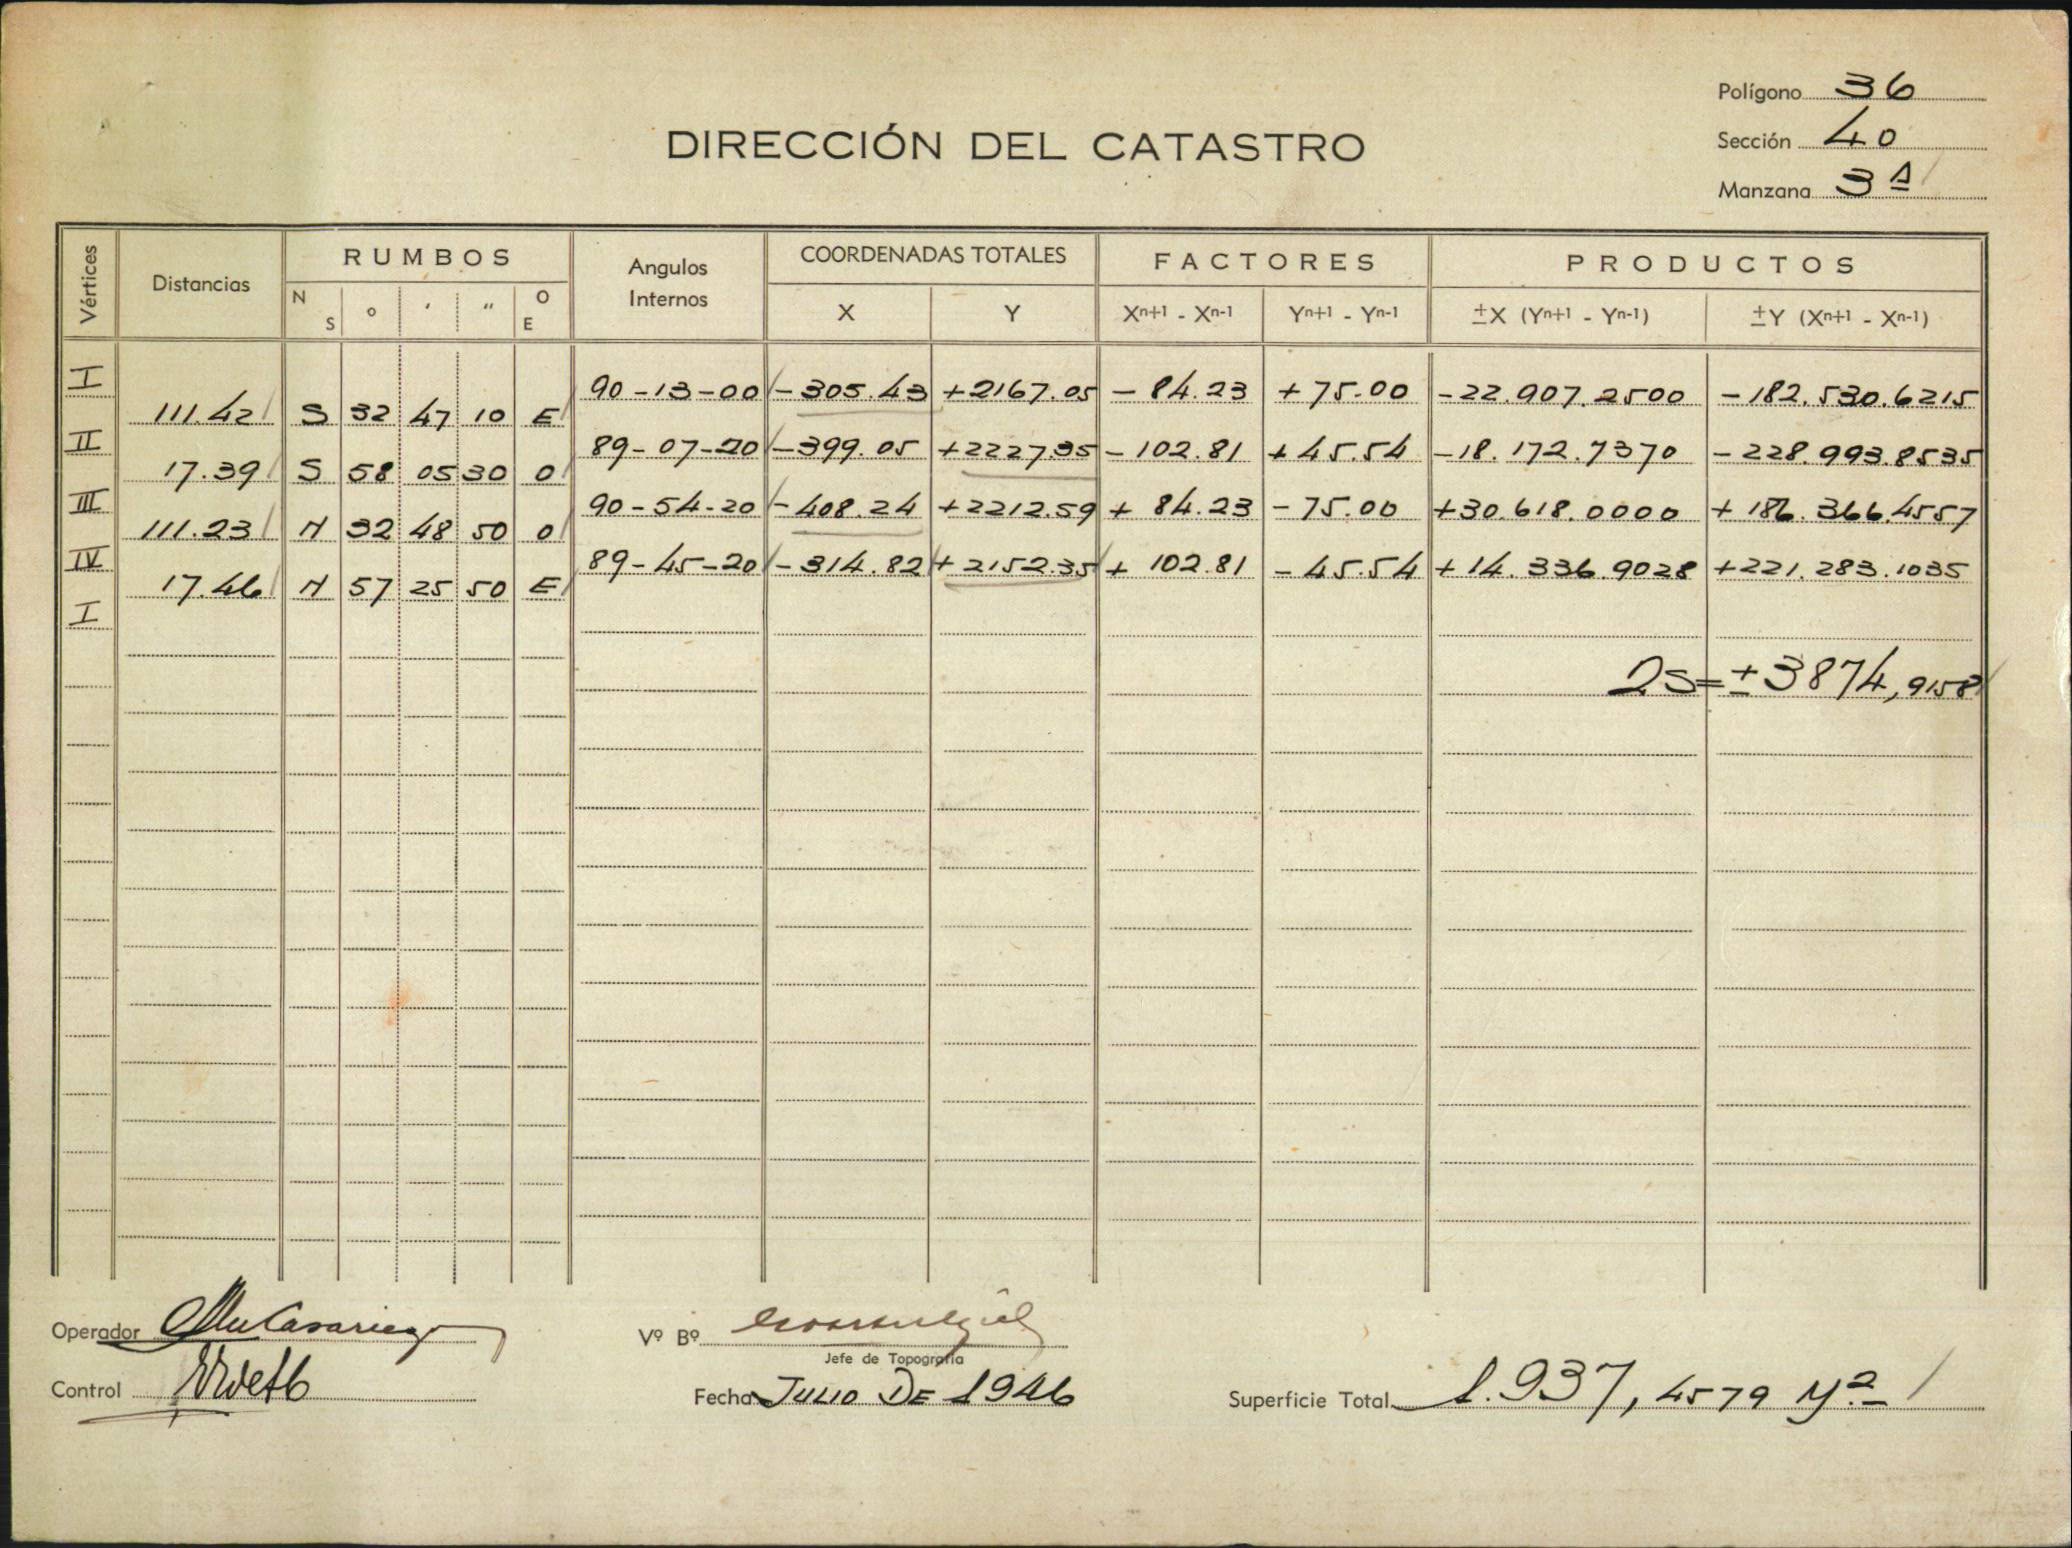 Polígono 36
DIRECCIÓN DEL CATASTRO
Sección 40
Manzana 3ª
Vértices Distancias RUMBOS Angulos Internos COORDENADAS TOTALES FACTORES PRODUCTOS
N S ° ′ ″ O E X Y Xn+1 - Xn-1 Yn+1 - Yn-1 ±X (Yn+1 - Yn-1) ±Y (Xn+1 - Xn-1)
I 90-13-00 -305.43 +2167.05 - 84.23 +75.00 -22.907.2500 -182.530.6215
111.42 S 32 47 10 E
II 89-07-20 -399.05 +2227.35 -102.81 +45.54 -18.172.7370 -228.993.8535
17.39 S 58 05 30 O
III 90-54-20 -408.24 +2212.59 + 84.23 -75.00 +30.618.0000 +186.366.4557
111.23 N 32 48 50 O
IV 89-45-20 -314.82 +2152.35 + 102.81 -45.54 +14.336.9028 +221.283.1035
17.46 N 57 25 50 E
I
2S=±3874,9158
Operador
Vº Bº
Jefe de Topografía
Control
Fecha JULIO DE 1946
Superficie Total 1.937,4579 M²